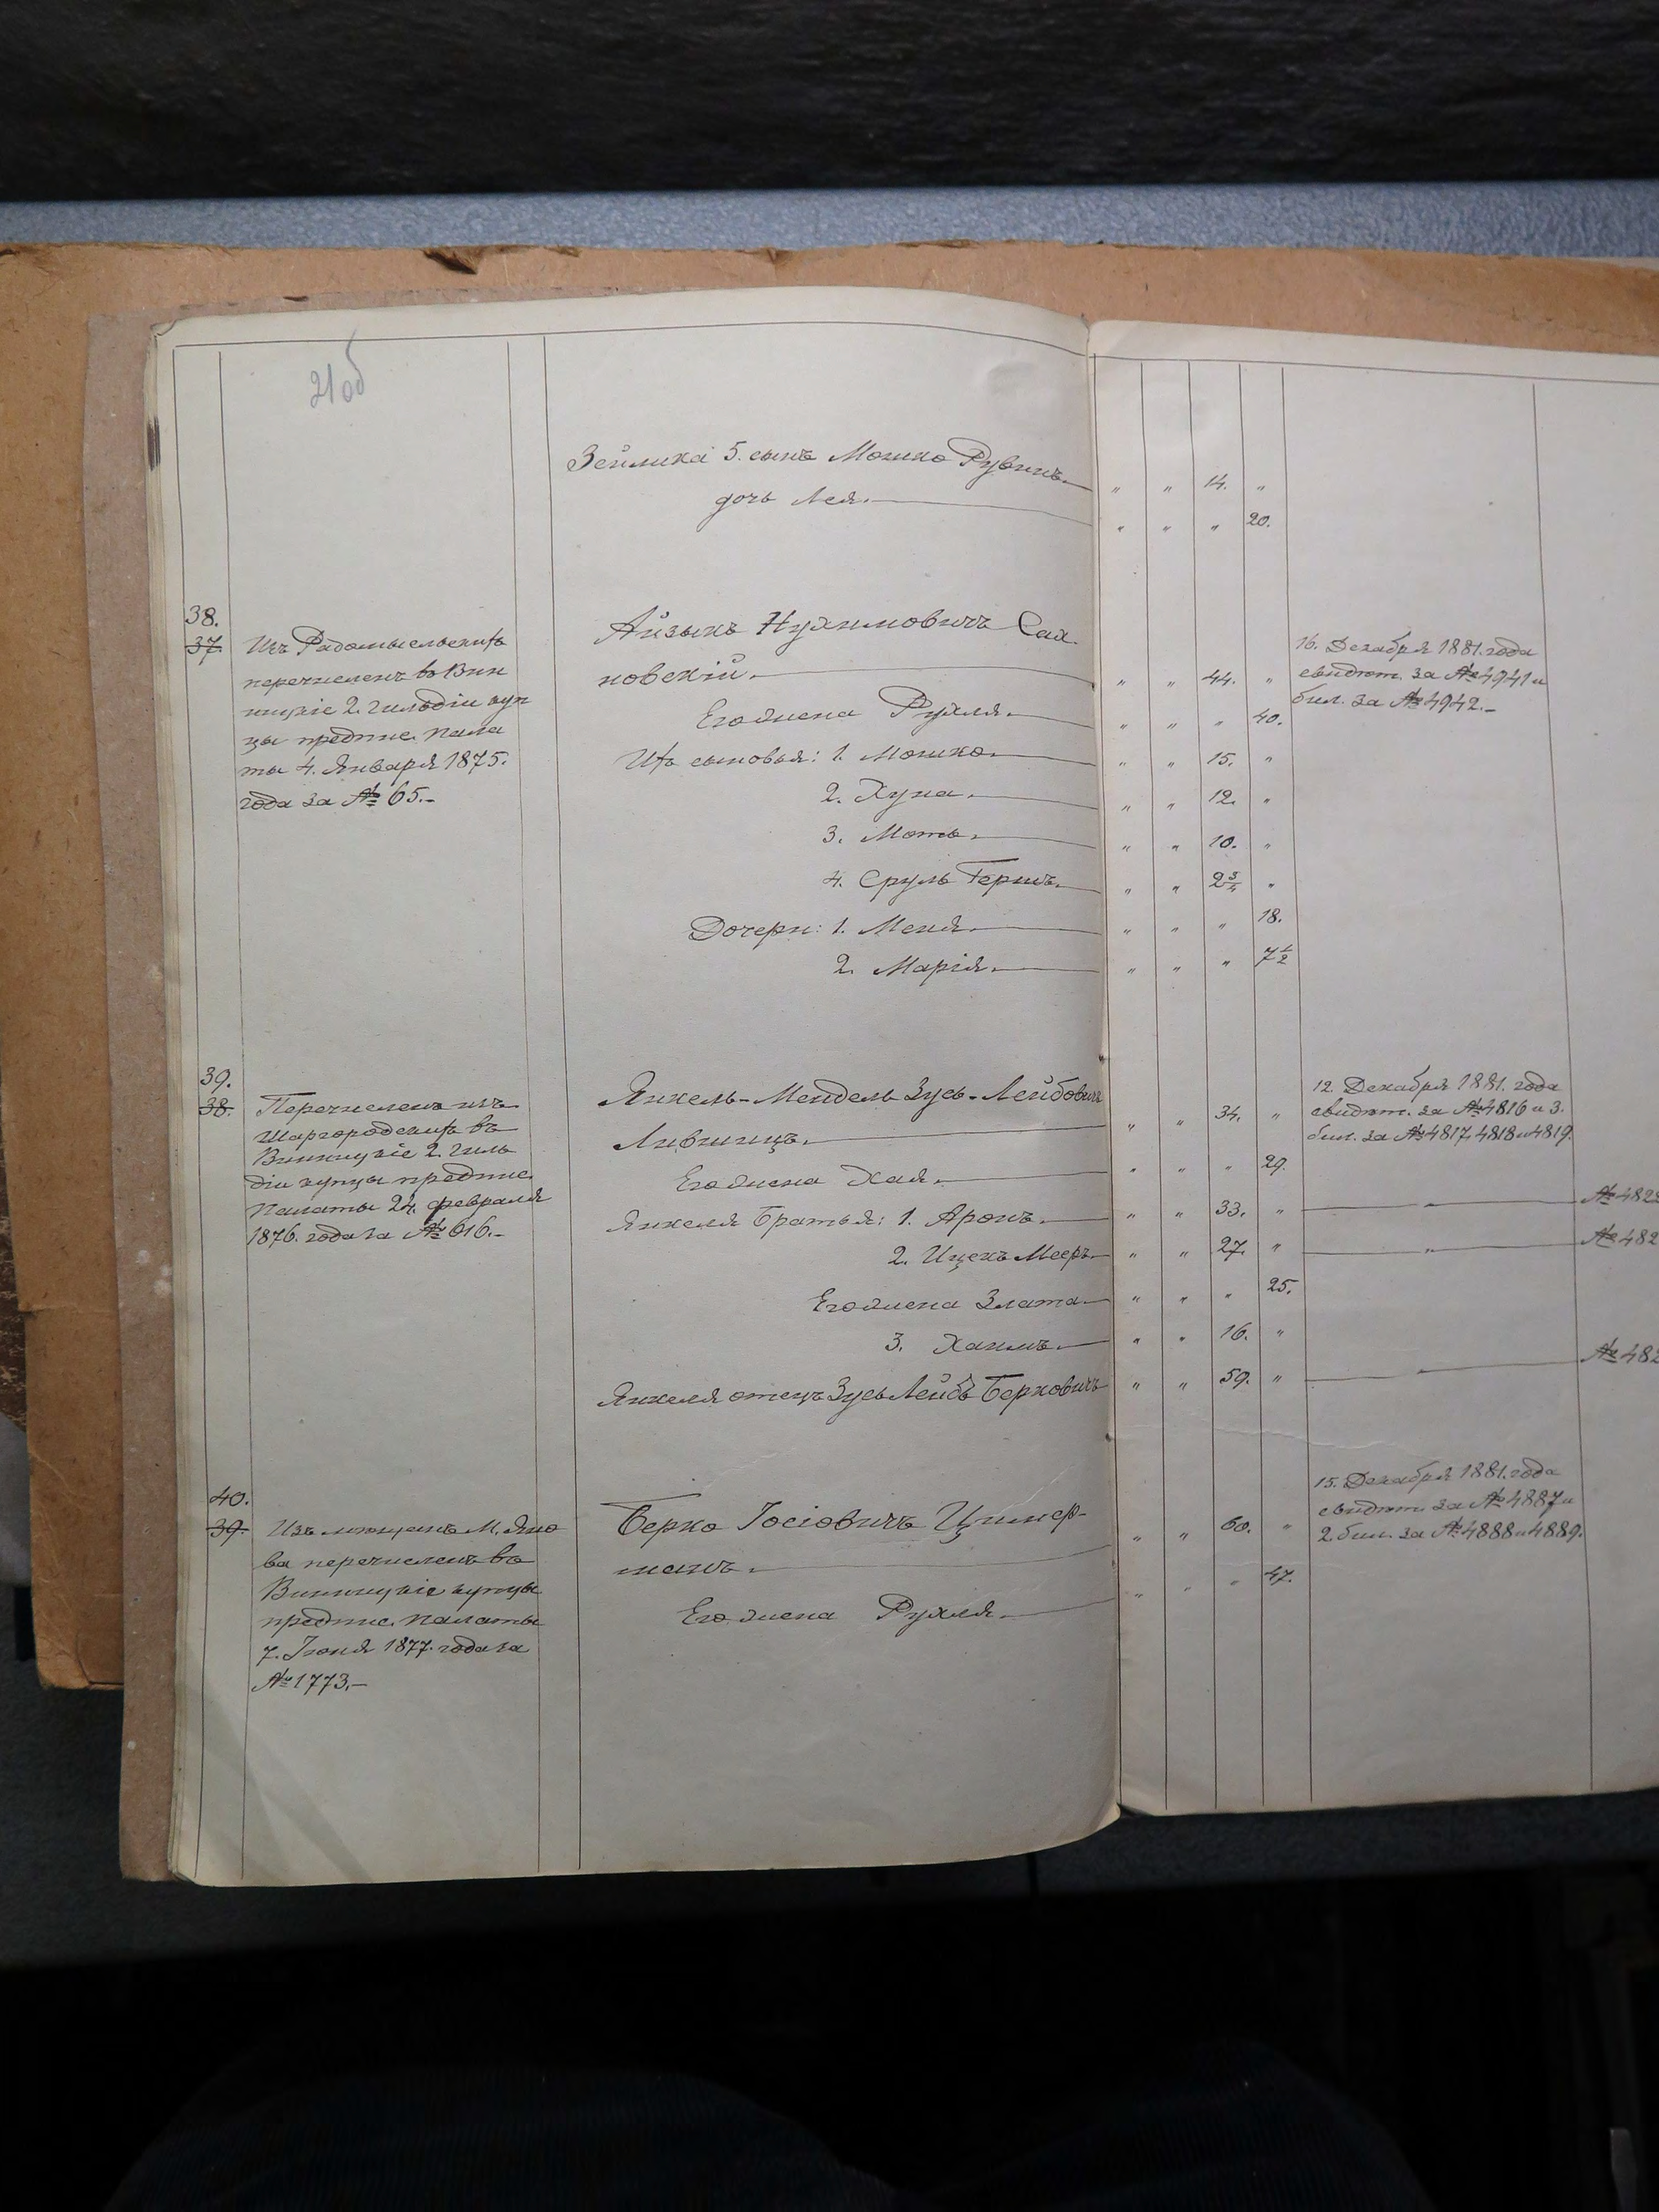 21 об
Зейлика 5. сынъ Мошко Рувинъ. " " 14. "
дочь Лея. " " " 20.
38.
37. Изъ Радомысльскихъ
перечисленъ въ Вин
ницкіе 2. гильдіи куп
цы предпис. Пала
ты 4. Января 1875.
года за № 65.-
Айзыкъ Нухимовичъ Сах.
новскій. " " 44. "
Его жена Рухля. " " " 40.
Ихъ сыновья: 1. Мошко. " " 15. "
2. Хуна. " " 12. "
3. Моть. " " 10. "
4. Сруль Гершъ. " " 2¾ "
Дочери: 1. Меня. " " " 18.
2. Марія. " " " 7½
16. Декабря 1881. года
свидѣт. за № 4941 и
бил. за № 4942.-
39.
38. Перечисленъ изъ
Шаргородскихъ въ
Винницкіе 2. гиль
діи купцы предпис.
Палаты 24. февраля
1876. года за № 616.-
Янкель-Мендель Зусь-Лейбовичъ
Лившицъ. " " 34. "
Его жена Хая. " " " 29.
Янкеля братья: 1. Аронъ. " " 33. "
2. Ицекъ Мееръ. " " 27. "
Его жена Злата. " " " 25.
3. Хаимъ. " " 16. "
Янкеля отецъ Зусь Лейбъ Берковичъ " " 59. "
12. Декабря 1881. года
свидѣт. за № 4816 и 3.
бил. за № 4817, 4818 и 4819.
№ 482
" № 482
" № 482
40.
39. Изъ мѣщанъ М. Яно
ва перечисленъ въ
Винницкіе купцы
предпис. Палаты
7. Іюня 1877. года за
№ 1773.-
Берко Іосіовичъ Цимер-
манъ. " " 60. "
Его жена Рухля. " " " 47.
15. Декабря 1881. года
свидѣт. за № 4887 и
2. бил. за № 4888 и 4889.